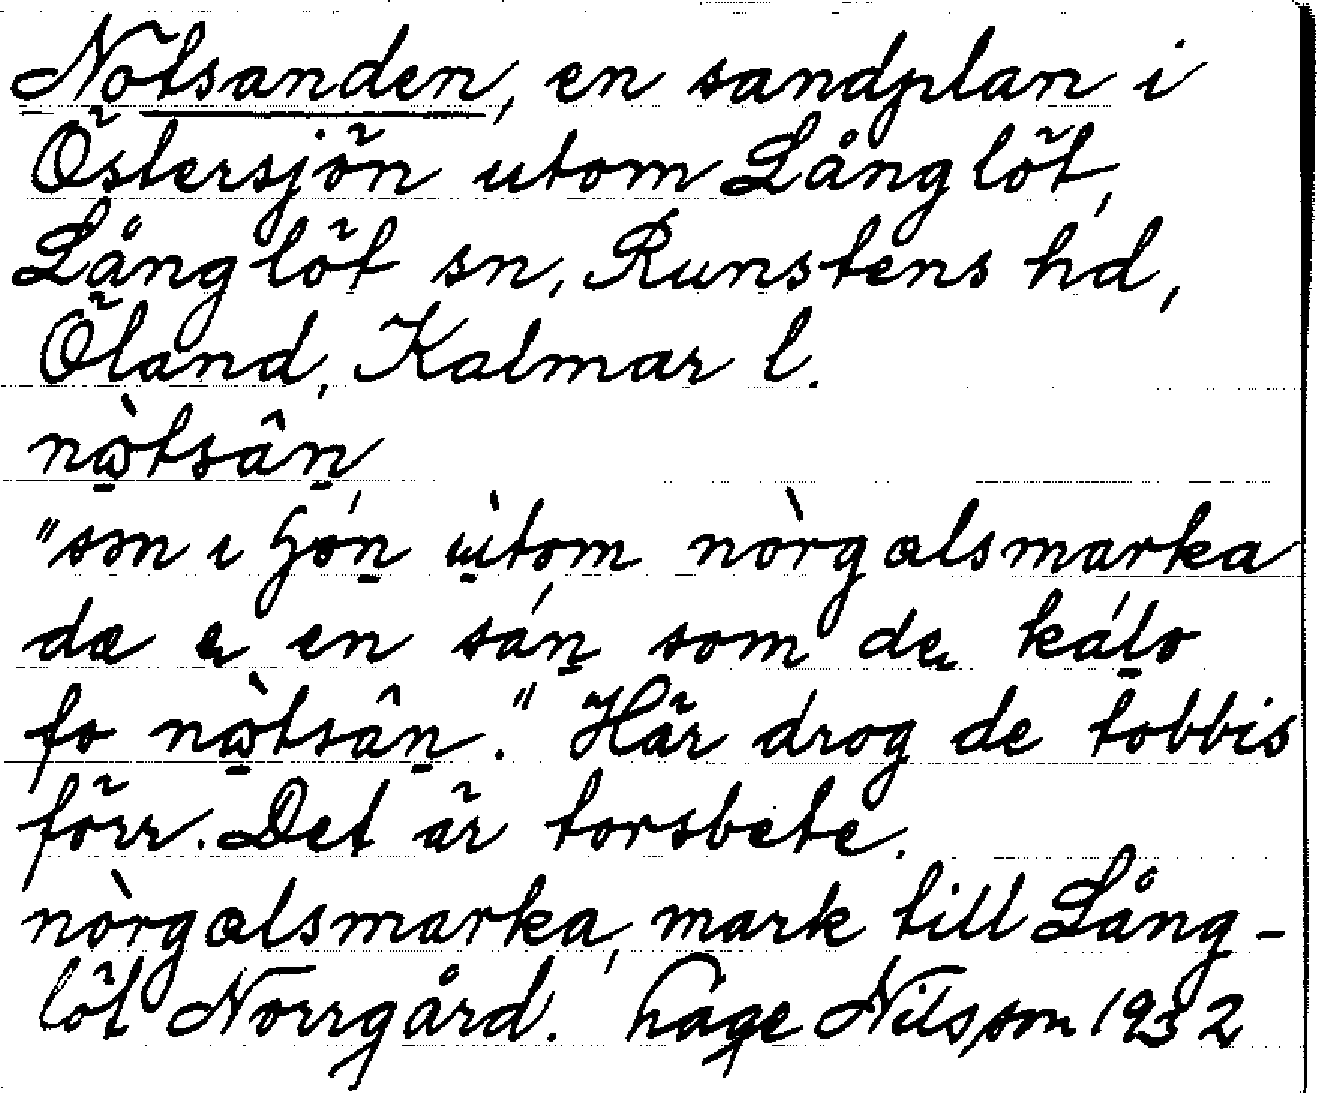 Notsanden, en sandplan i
Östersjön utom Långlöt,
Långlöt sn, Runstens hd,
Öland, Kalmar l.
nὼ̱tsân̠
"søn ı hjón̠ ùtom nòrgalsmarka
dæ e en sán̠ som de kál̠ɑ
fo nὼ̱tsân̠." Här drog de tobbis
förr. Det är torsbete.
nòrgalsmarka, mark till Lång-
löt Norrgård. Hage Nilsson 1932